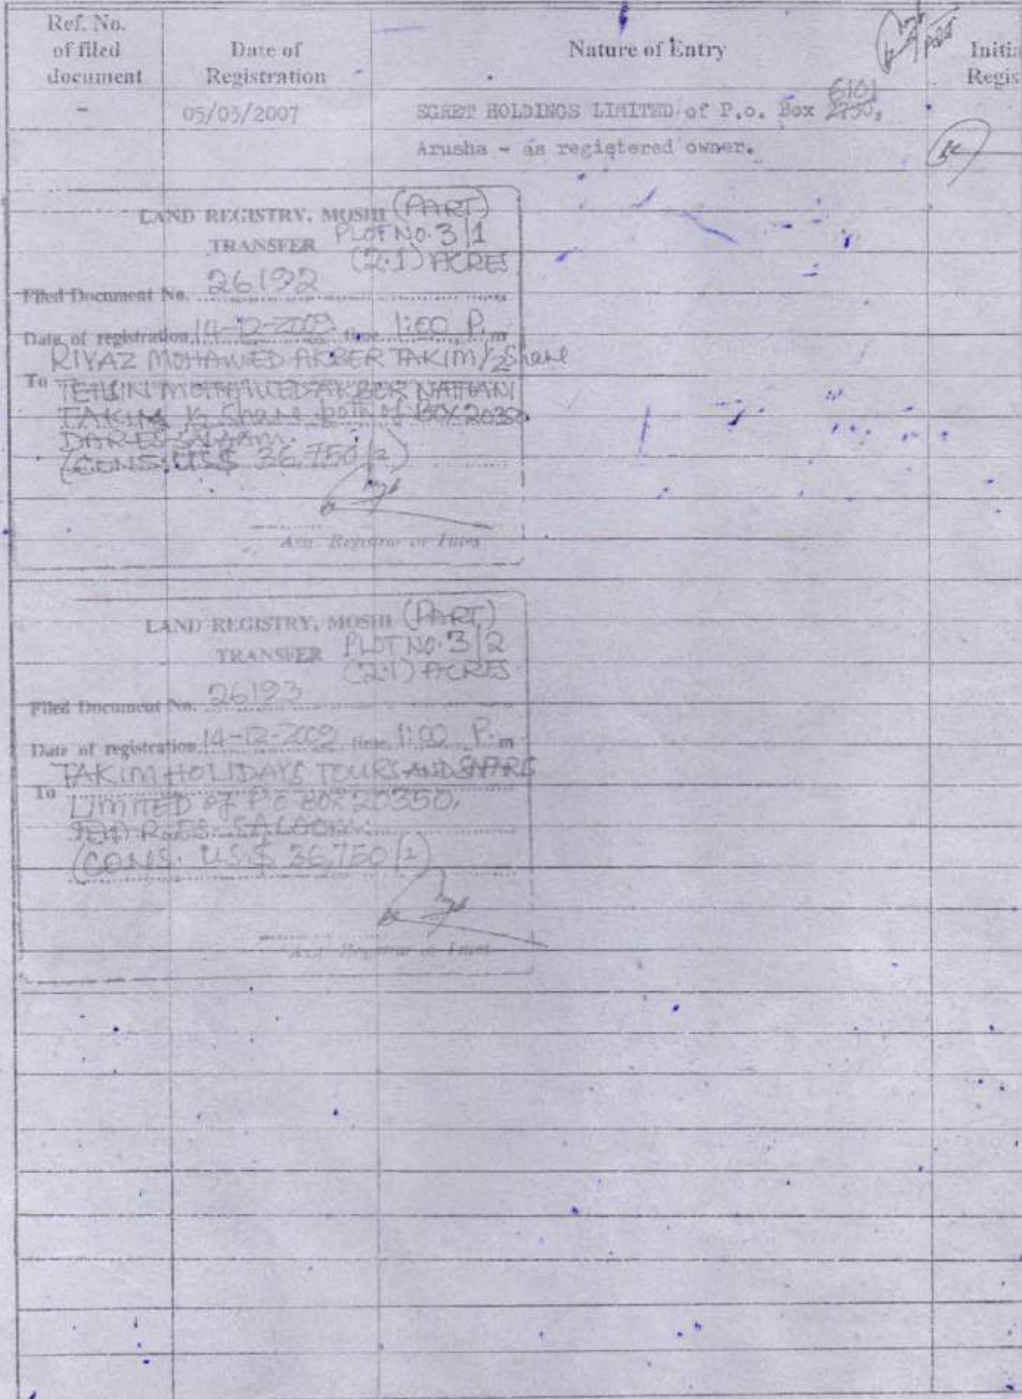 Ref. No.
of filed
document
Date of
Registration
Nature of Entry
Initia
Regis
-
05/03/2007
EGRET HOLDINGS LIMITED of P.o. Box 2750,
6101
Arusha - as registered owner.
LAND REGISTRY, MOSHI (PART)
TRANSFER PLOT NO. 3/1
(2.1) ACRES
Filed Document No. 26192
Date of registration 14-12-2009 time 1:00 P.m
RIYAZ MOHAMED AKBER TAKIM 1/2 Share
To MOHAMED AKBER NATHANI
TAKIM 1/2 Share both of Box 20350
DAR ES SALAAM.
(CONS. US$ 36,750/=)
Asst. Registrar of Titles
LAND REGISTRY, MOSHI (PART)
TRANSFER PLOT NO. 3/2
(2.1) ACRES
Filed Document No. 26193
Date of registration 14-12-2009 time 1:00 P.m
TAKIM HOLIDAYS TOURS AND SAFARIS
To LIMITED of P.O BOX 20350,
(CONS. US$ 36,750/=)
Asst. Registrar of Titles